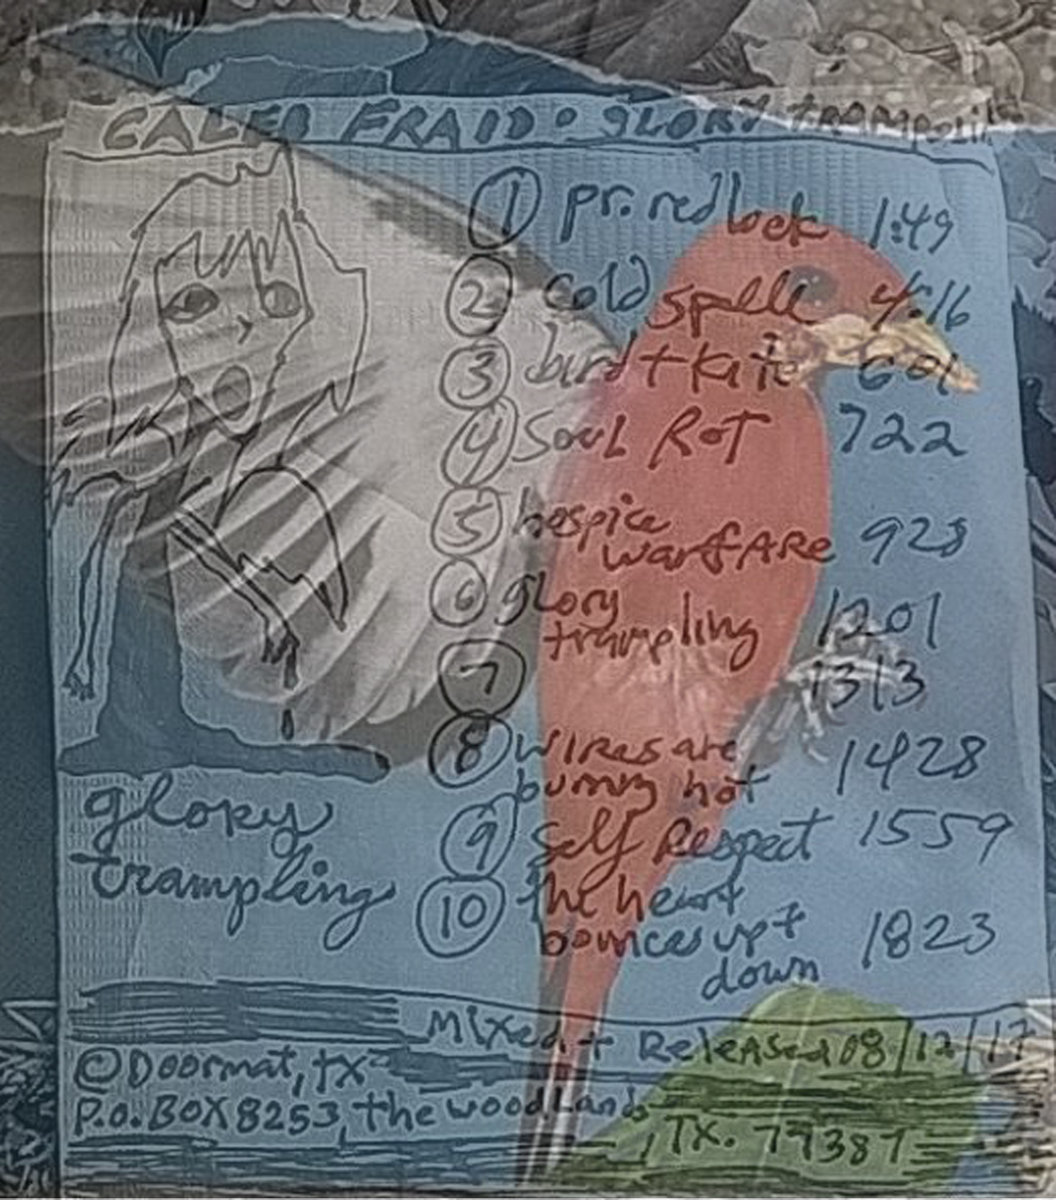 CALEB FRAID: glory trampolin
① pr. red lock 1:49
② cold spell 4:16
③ bird + kite 601
④ SOUL ROT 722
⑤ hospice
warfARe 928
⑥ glory
trampling 1201
⑦ 1313
⑧ WIRes are
bummy hot 1428
⑨ Self Respect 1559
⑩ the heart
bounces up +
down 1823
glory
trampling
Mixed + ReleAsed 08/12/17
@Doormat, tx
P.O. BOX 8253, the woodlands
, TX. 77387